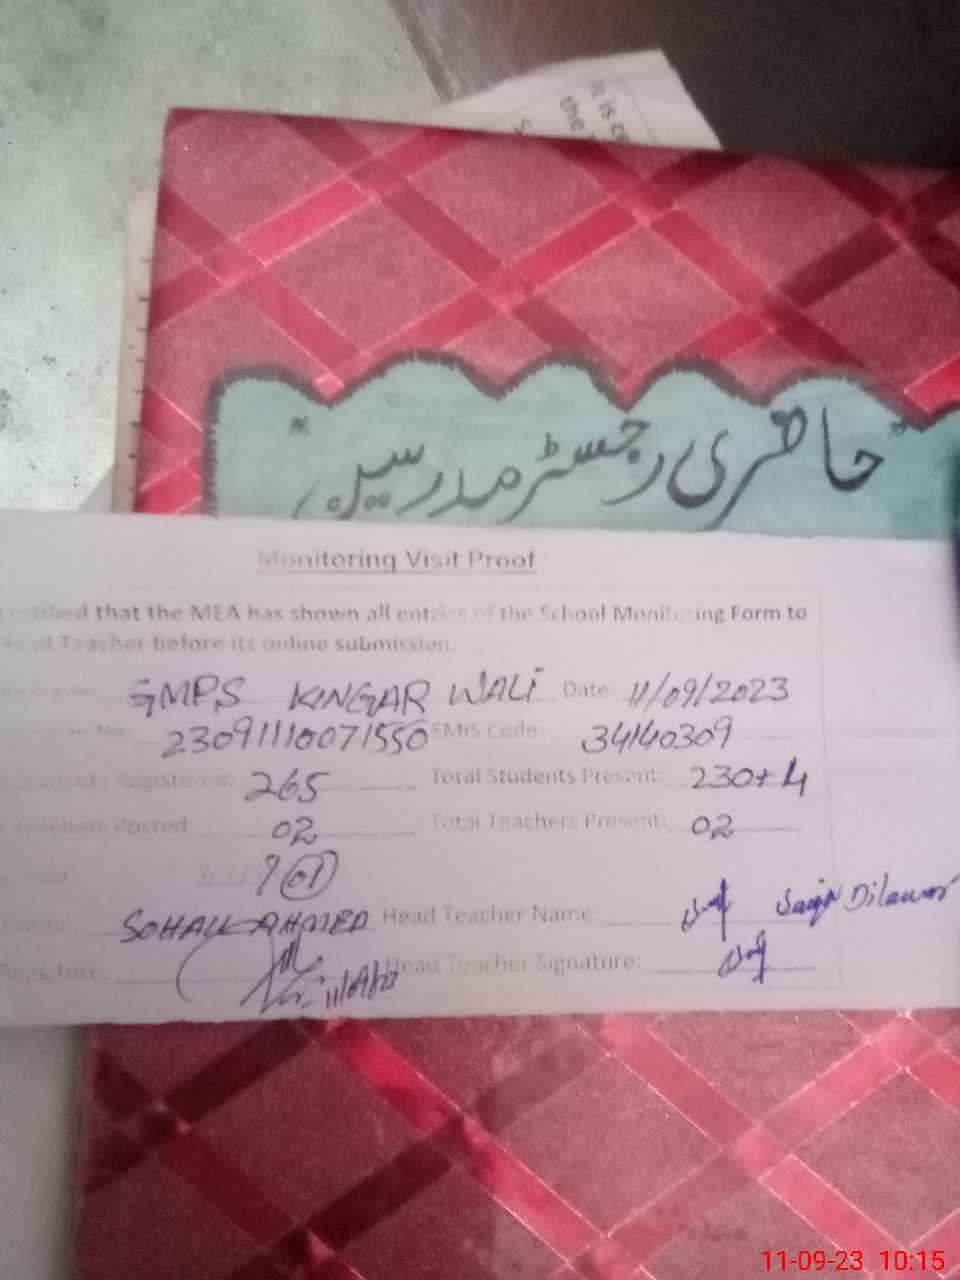 it is ce
the
S
"حاضری رجسٹر مدرسین"
Monitoring Visit Proof
certified that the MEA has shown all entries of the School Monitoring Form to
Head Teacher before its online submission.
GMPS KINGAR WALI Date: 11/09/2023
23091110071550 EMIS Code: 34140309
Students Registered: 265 Total Students Present: 230+4
Teachers Posted: 02 Total Teachers Present: 02
01
SOHAIL AHMED Head Teacher Name: Dilawar
Signature: 11/09/23 Head Teacher Signature:
11-09-23 10:15